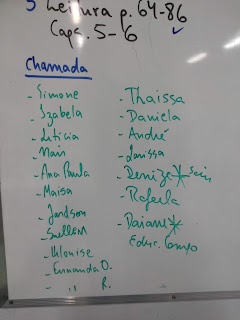 5 Leitura p. 64-86
Caps. 5-6
Chamada
- Simone
- Izabela
- Letícia
- Mari
- Ana Paula
- Maisa
- Jardson
- Suellen
- Khlouise
- Fernanda O.
- " R.
- Thaissa
- Daniela
- André
- Larissa
- Denize
- Rafaela
- Daiane
Educ. Campo